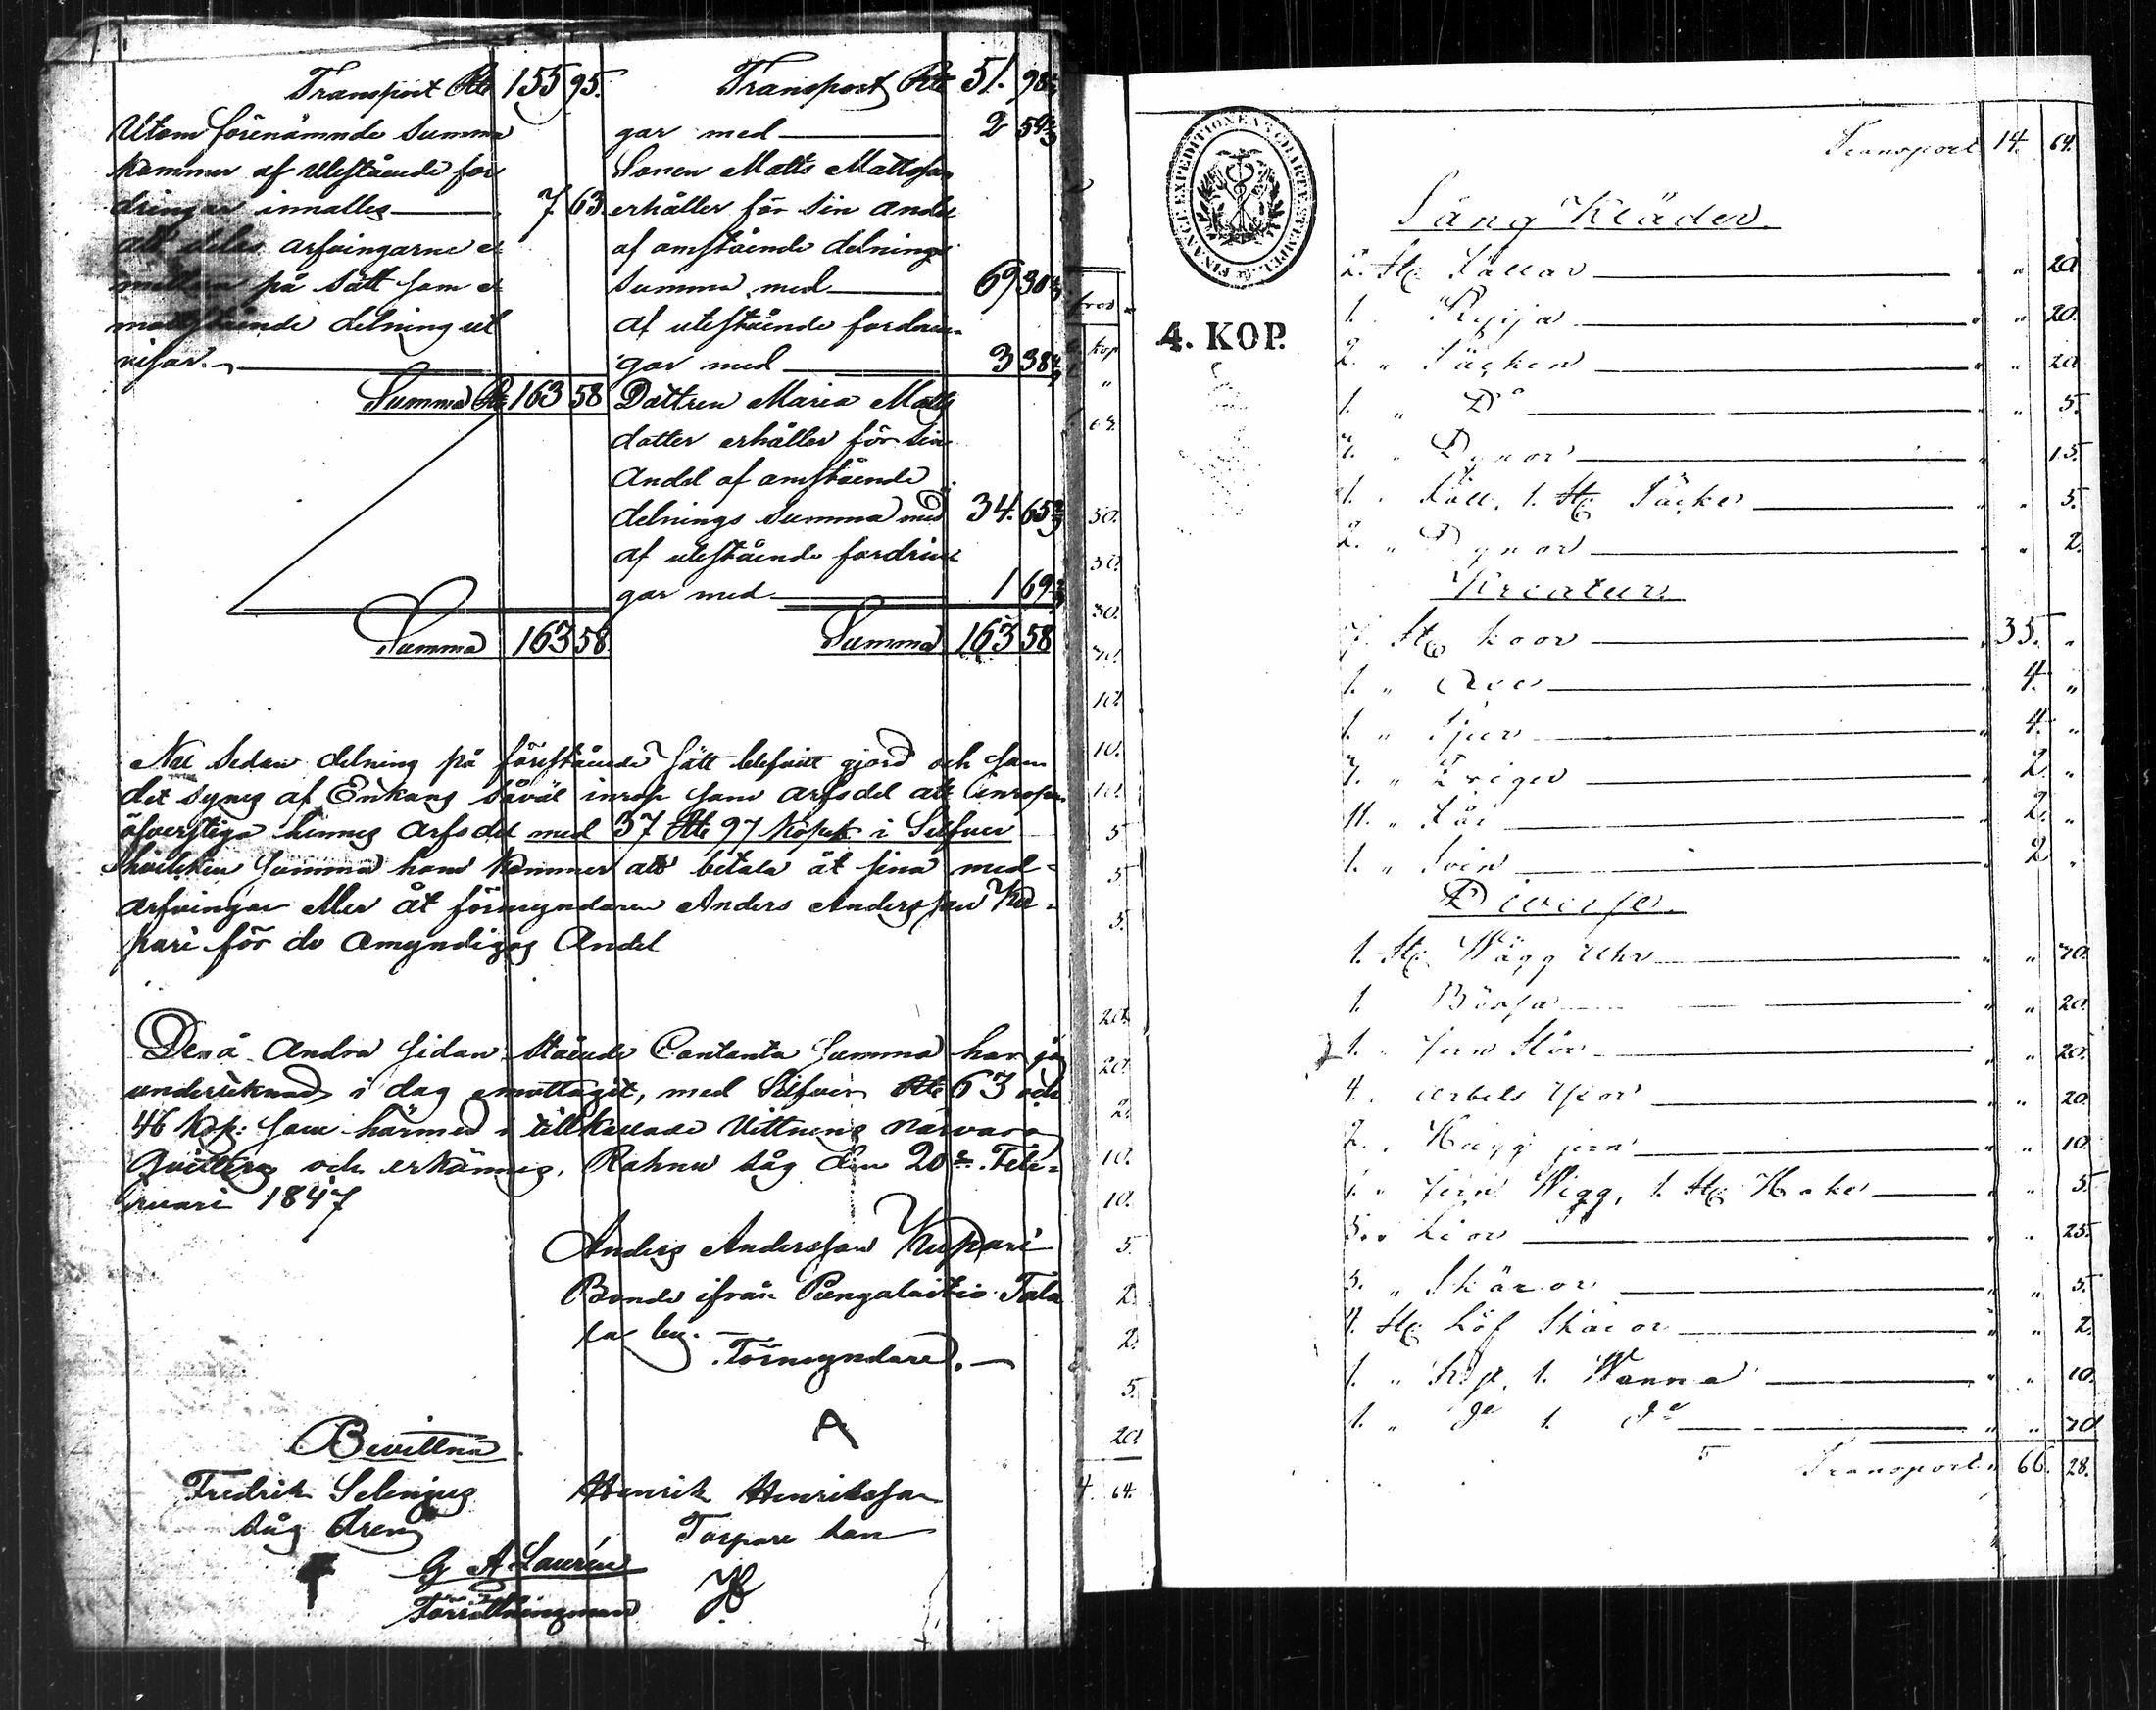 Transport Rbl 155 95.
Utom förenämnde summa
kommer af Utestående for
dringar innalles 7 63.
att delas arfvingarne e-
mellan på sätt som e-
motstående delning ut
visar.
Summa Rbl 163 58
Summa 163 58
Transport Rbl 51. 98
gar med 2 54
Sonen Matts Mattsson
erhåller för sin andel
af omstående delnings
summa med 69 30
af utestående fordrin-
gar med 3 38
Dottren Maria Matts
dotter erhåller för sin
Andel af omstående
delnings summa med 34. 65
af utestående fordrin
gar med 1 69
Summa 163 58
Nu sedan delning på föreståede sätt blefvit gjord och som
det synes af Enkans såväl inrop som arfsdel att inropen
öfverstiga hennes arfsdel med 37 Rbl 97 Kopek i Silfver
hvilken summa hon kommer att betala åt sina med-
arfvingar eller åt förmyndaren Anders Andersson Ku-
pari för de Omyndigas Andel
Den å Andra sidan stående Contanta summa har jag
undertecknad i dag emottagit, med Silfver Rbl 63 och
46 Kop: som härmed i tillkallade Vittnens närvaro
Qvitteras och erkännes. Rahnu såg den 20 Feb-
ruari 1847
Anders Andersson Kupari
Bonde ifrån Pengalaitio Tala
la by.
Förmyndare.
Bevittna
Fredrik Selenius
såg dreng
Henrik Henriksson
Torpare son
G A Laurén
Förrättningsman
kop
64.
50.
50.
30.
70.
10.
10.
10.
5
5
5.
20.
20.
2.
10.
10.
5.
2.
2.
5.
20.
4. 64.
FINANCE EXPEDITIONENS CHARTÆ STEMPEL
4. KOP.
Transport 14. 64.
Säng Kläder.
2. St: Fällar " 20.
1. Ryija " 20.
2. " Täcken " 20
1. " Do " 5.
7. " Dynor 15.
1. Fäll, 1. St: Täcke " 5.
2. " Dynor " 2.
Kreatur
7. St: koor 35. "
1. " Qvie 4. "
1. " Tjur 4. "
7. " Qvigor 2. "
11. " Får 2. "
1. " Svin 2 "
Diverse.
1. St: Wägg Uhr " 70.
1. Bössa " 20.
1. Jern Stör " 20.
4. Arbets Yxor " 20.
2. Hugg jern " 10.
1. " Jern Wigg, 1. St: Hake " 5.
5. " Liar " 25.
5. " Skäror " 5.
4. St: Löf Skäror " 2.
1. " Kopp, 1. Wanna " 10.
1. " do 1. do " 70
Transport 66. 28.